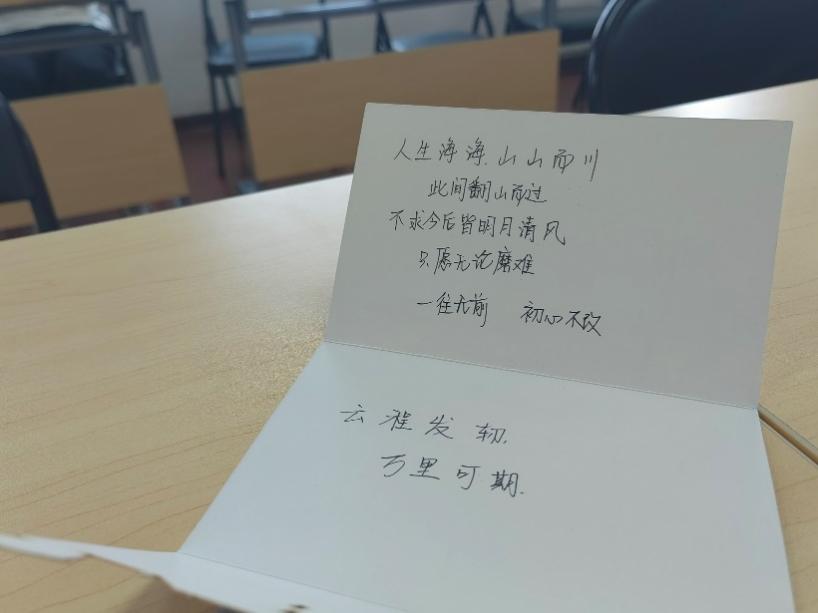 人生海海,山山而川
此间翻山而过
不求今后皆明月清风
只愿无论磨难
一往无前 初心不改
云程发轫,
万里可期.